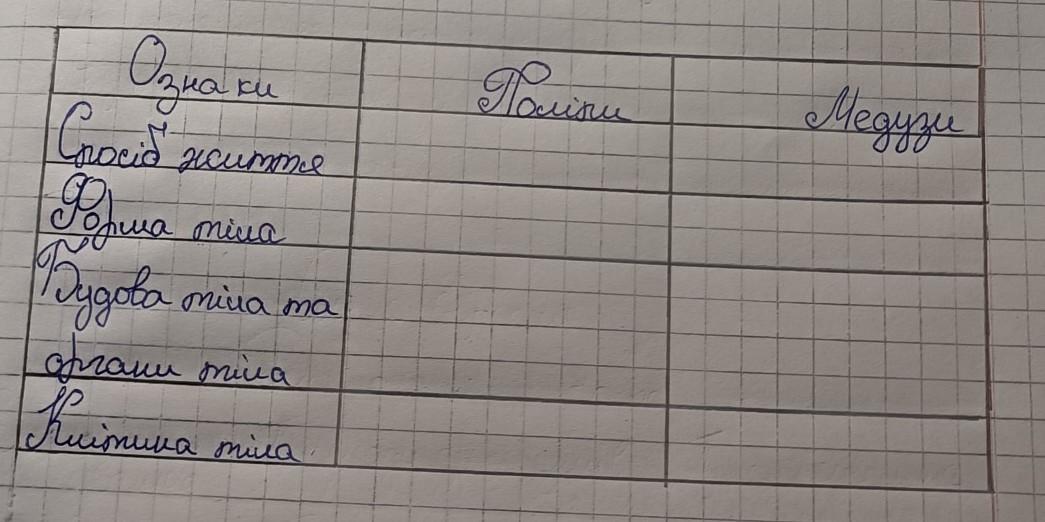 Ознаки Поліпи Медузи
Спосіб життя
Форма тіла
Будова тіла та
органи тіла
Клітина тіла